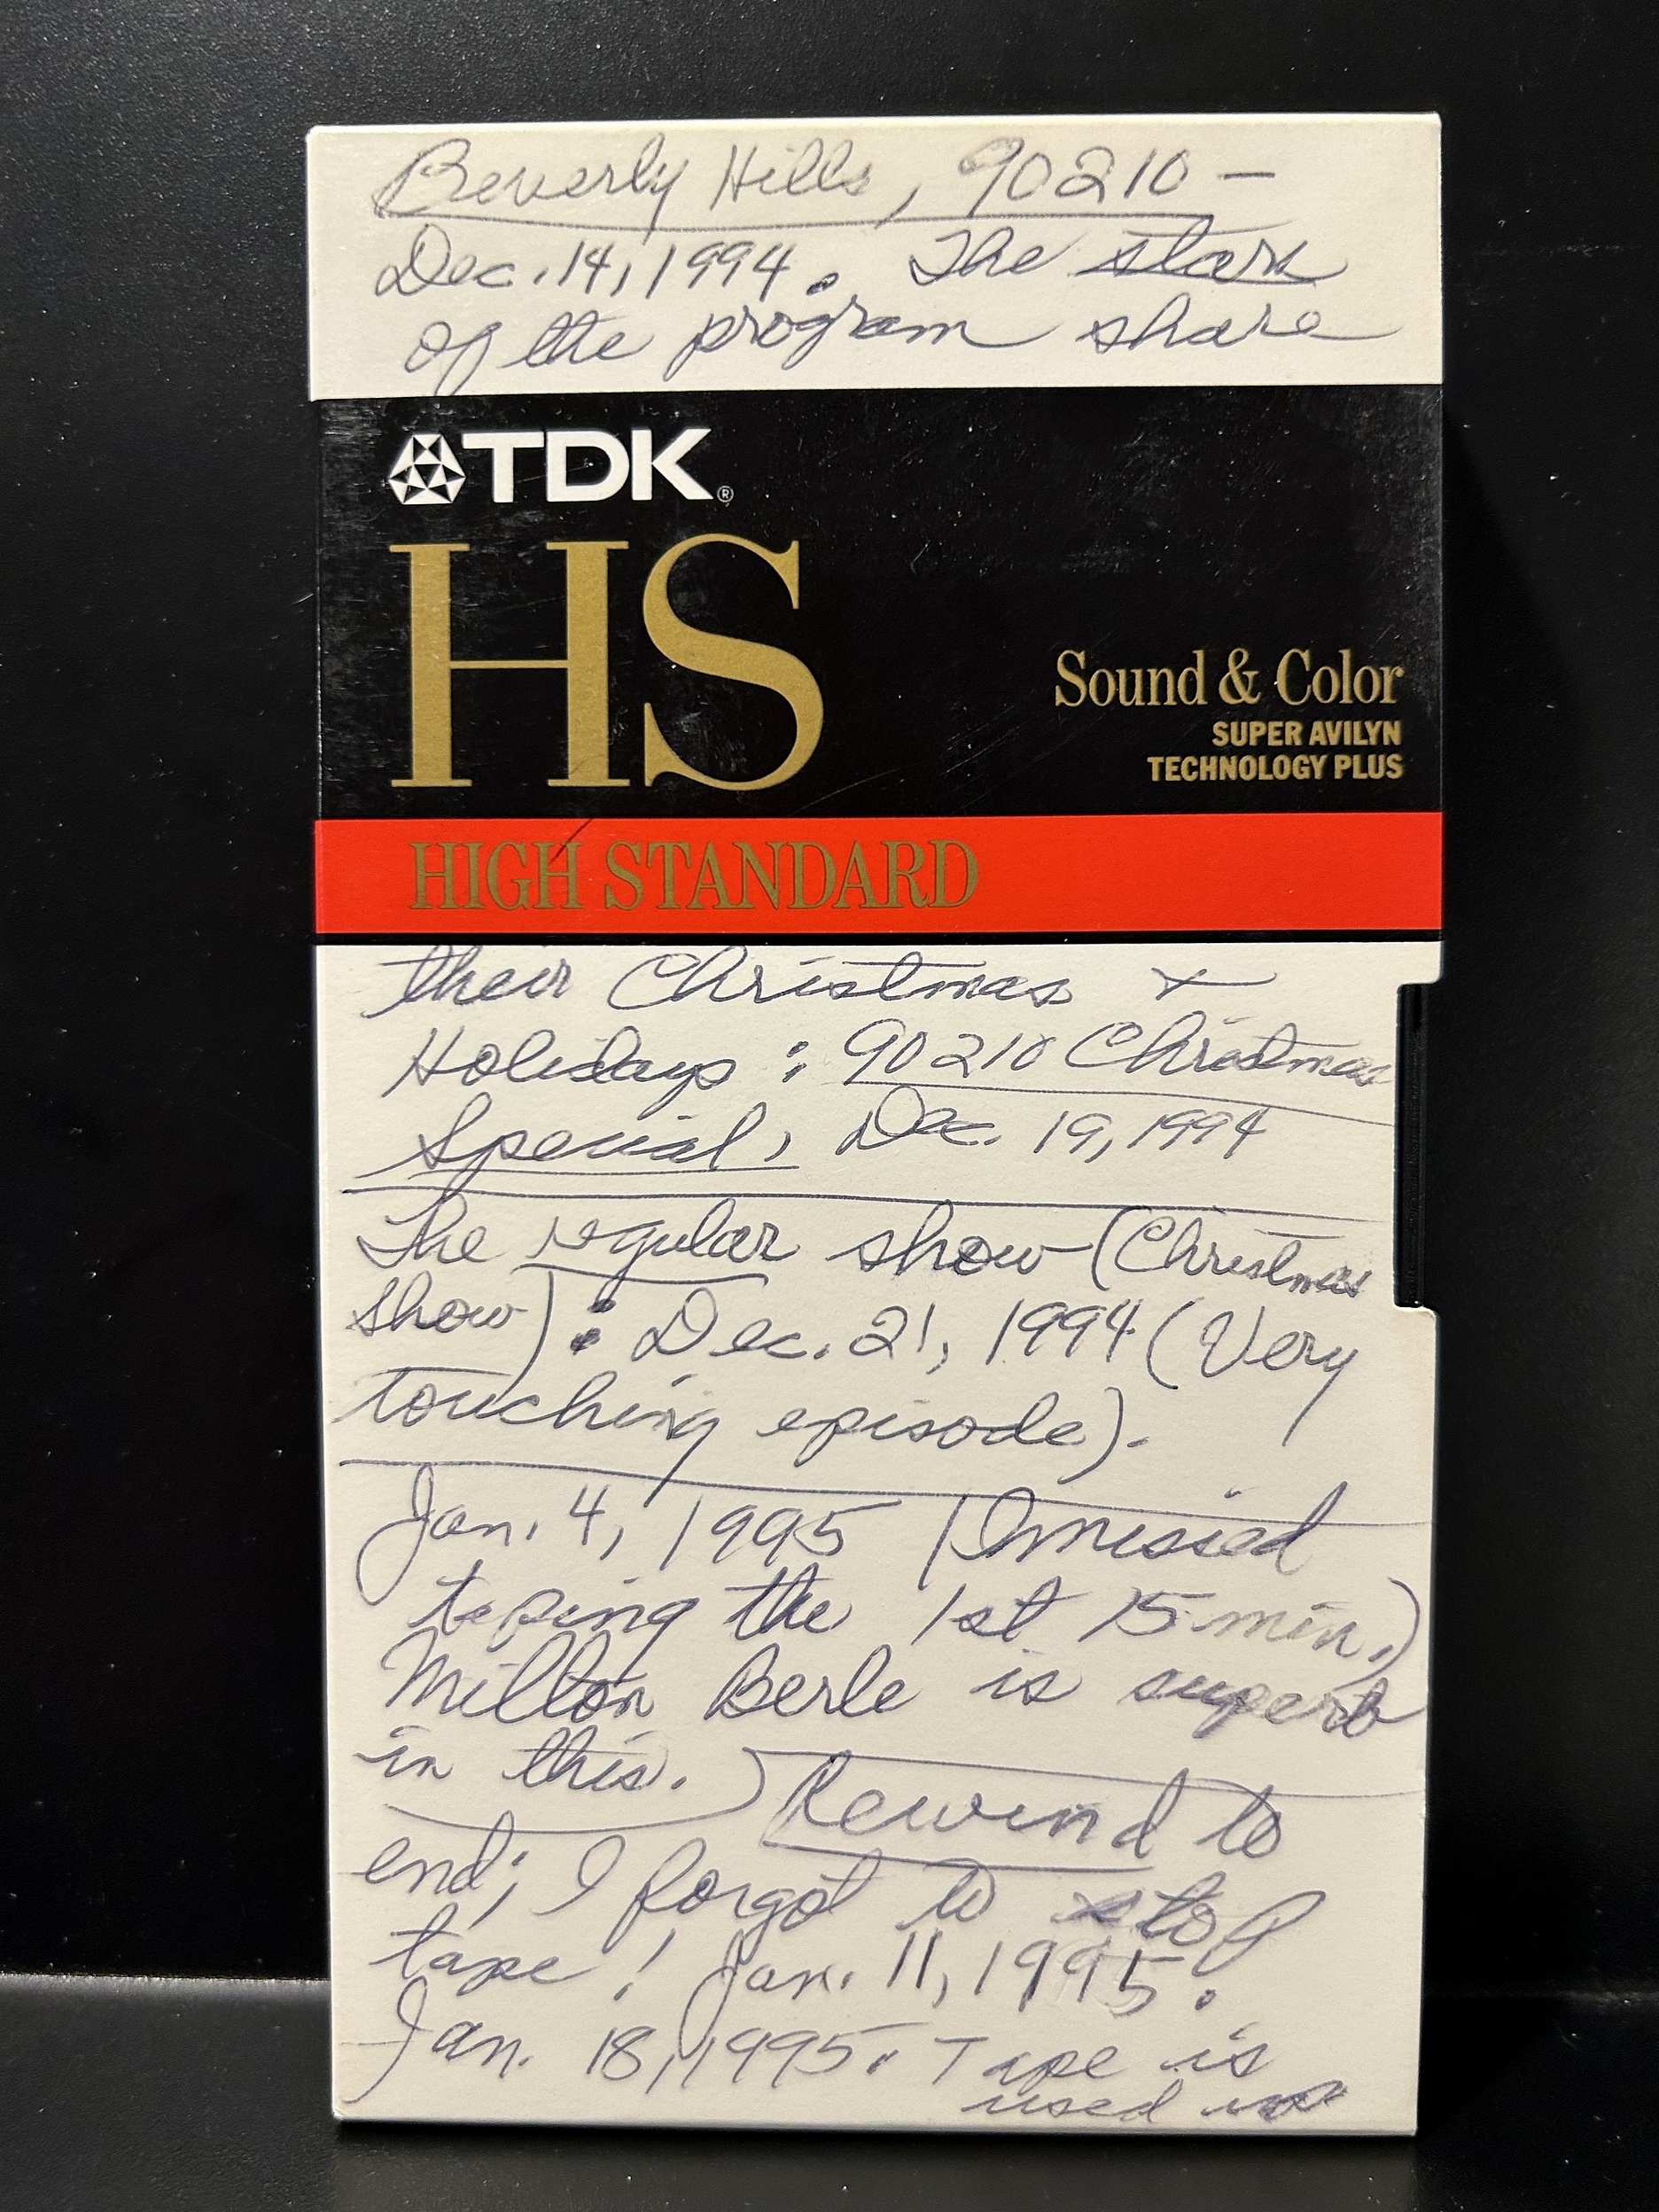 Beverly Hills, 90210 —
Dec. 14, 1994. The stars
of the program share
TDK®
HS
Sound & Color
SUPER AVILYN
TECHNOLOGY PLUS
HIGH STANDARD
their Christmas +
Holidays: 90210 Christmas
Special, Dec. 19, 1994
The regular show (Christmas
show): Dec. 21, 1994 (Very
touching episode).
Jan. 4, 1995 (I missed
taping the 1st 15 min.)
Milton Berle is superb
in this. Rewind to
end; I forgot to stop
tape! Jan. 11, 1995.
Jan. 18, 1995. Tape is
used